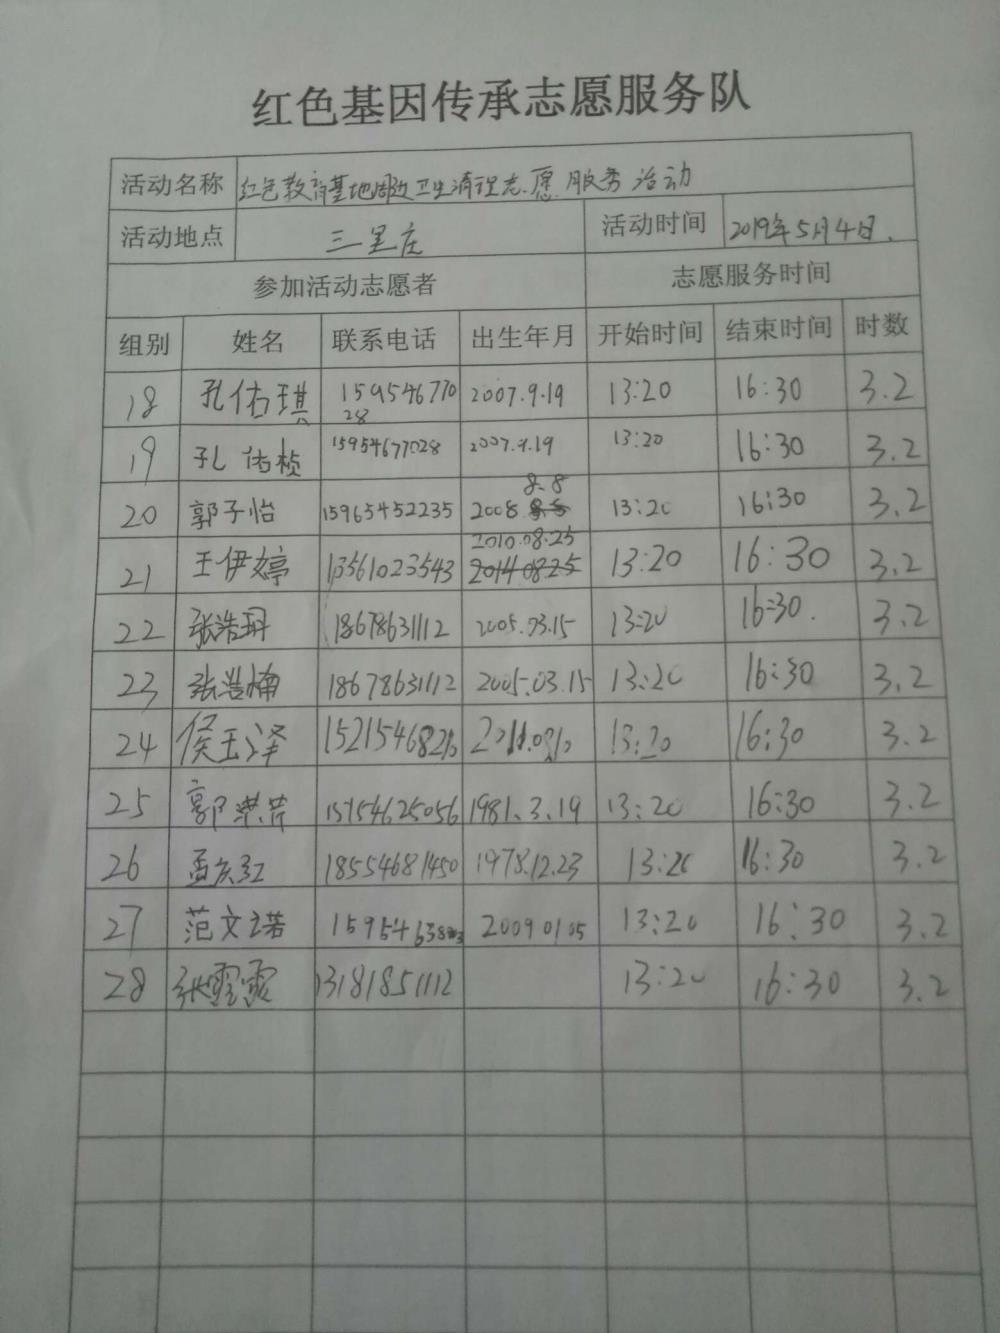 红色基因传承志愿服务队
活动名称 红色教育基地周边卫生清理志愿服务活动
活动地点 三里庄 活动时间 2019年5月4日.
参加活动志愿者 志愿服务时间
组别 姓名 联系电话 出生年月 开始时间 结束时间 时数
18 孔佑琪 15954677028 2007.9.19 13:20 16:30 3.2
19 孔佑桢 15954677028 2007.9.19 13:20 16:30 3.2
20 郭子怡 15965452235 2008.8.8 13:20 16:30 3.2
21 王伊婷 13561023543 2010.08.25 13:20 16:30 3.2
22 张浩 18678631112 2005.03.15 13:20 16:30. 3.2
23 张浩楠 18678631112 2005.03.15 13:20 16:30 3.2
24 侯玉泽 13:20 16:30 3.2
25 郭 15754625056 1981.3.19 13:20 16:30 3.2
26 孟庆红 18554681450 1978.12.23 13:20 16:30 3.2
27 范文诺 2009 01 05 13:20 16:30 3.2
28 张霞 13181851112 13:20 16:30 3.2